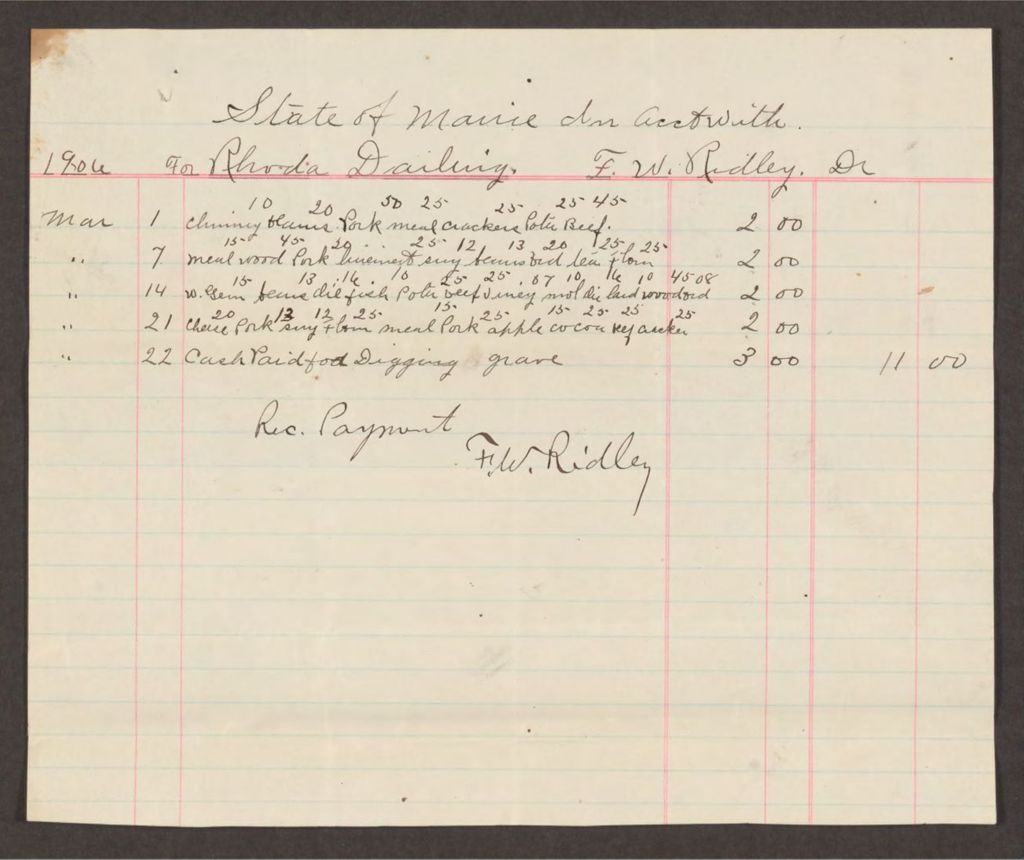 State of Maine In acct with.
1906 For Rhoda Darling. F. W. Ridley. Dr
10 20 50 25 25 25 45
Mar 1 chimney beans Pork meal crackers Pota Beef. 2 00
15 45 20 25 12 13 20 25 25
" 7 meal wood Pork beans tea flour 2 00
15 13 .16 . 10 25 25 . 07 10 16 10 45 08
" 14 beans oil fish Pota beef mol lard wood 2 00
20 13 12 25 15 25 15 25 25 25
" 21 Pork flour meal Pork apple cocoa 2 00
" 22 Cash Paid for Digging grave 3 00 11 00
Rec. Payment
F.W. Ridley